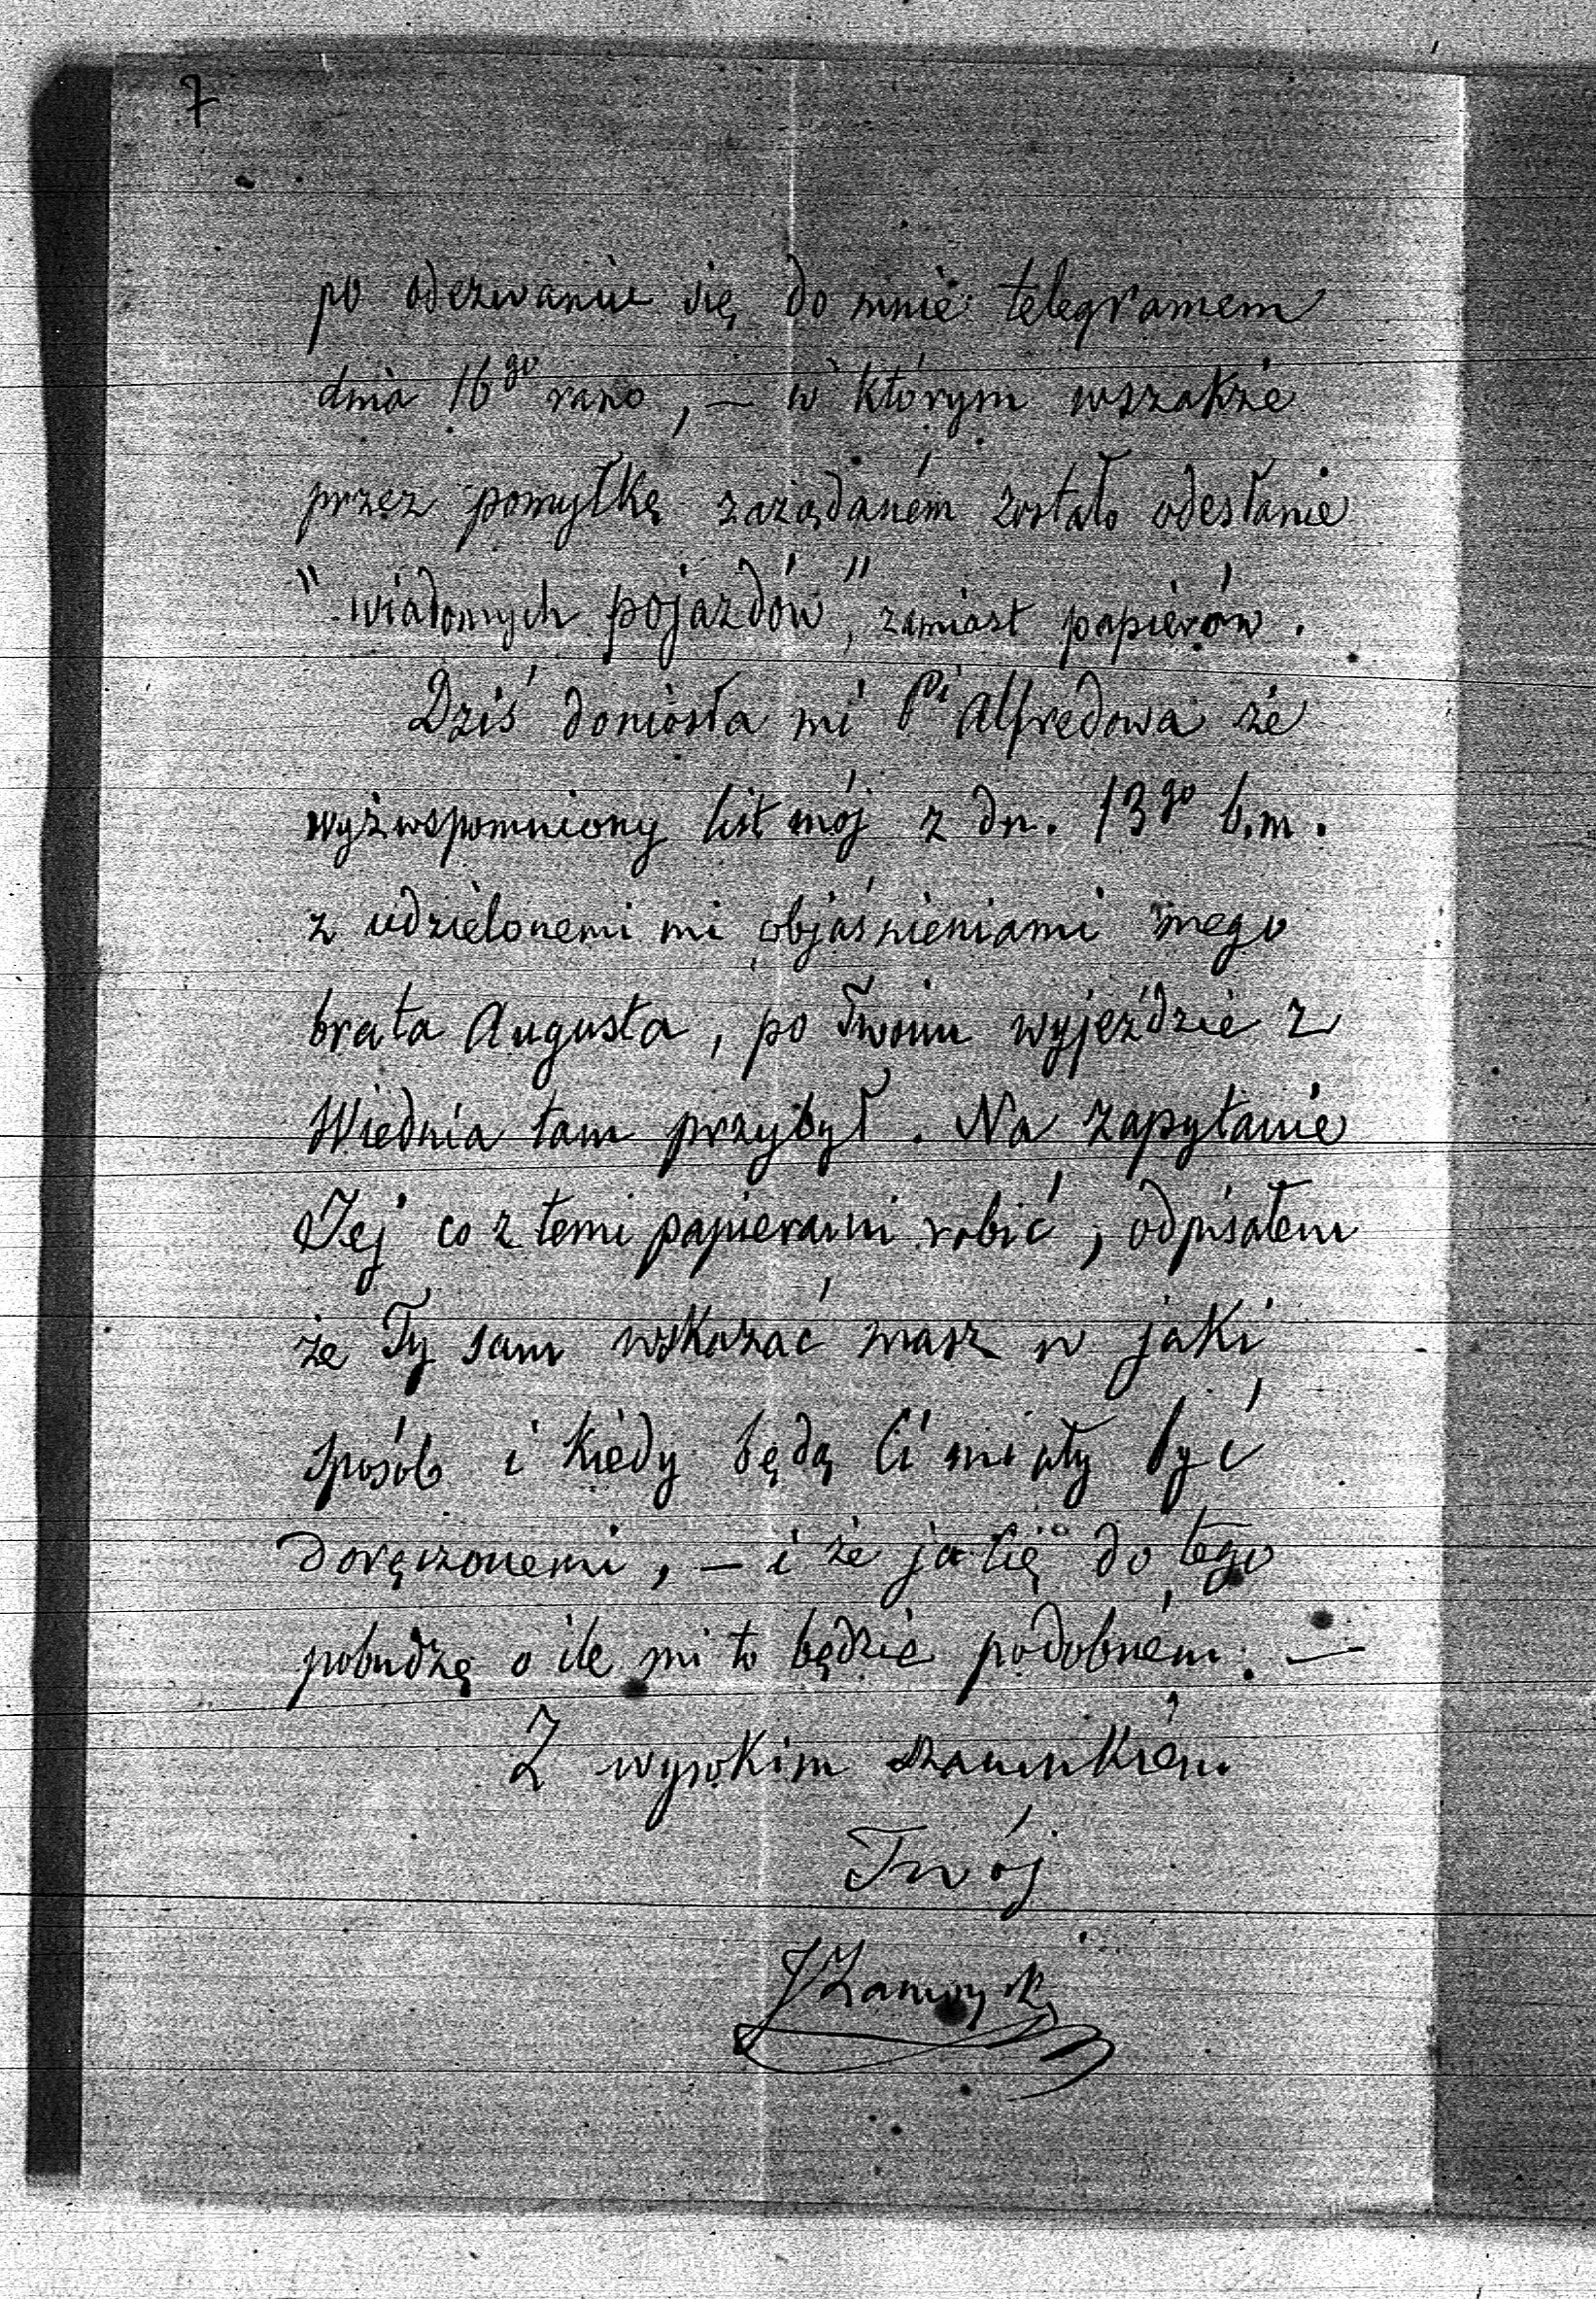 7
po odezwaniu się do mnie telegramem
dnia 16go rano, — w którym wszakże
przez pomyłkę zażądaném zostało odesłanie
"wiadomych pojazdów", zamiast papierów.
Dziś doniosła mi Pi Alfredowa że
wyżwspomniony list mój z dn. 13go b.m.
z udzielonemi mi objaśnieniami mego
brata Augusta, po Twoim wyjeździe z
Wiednia tam przybył. Na zapytanie
Jej co z temi papierami robić, odpisałem
że Ty sam wskazać masz w jaki
sposób i kiedy będą Ci miały być
doręczonemi, — i że ja Cię do tego
pobudzę o ile mi to będzie podobném. —
Z wysokim szacunkiém
Twój
JZamoyski